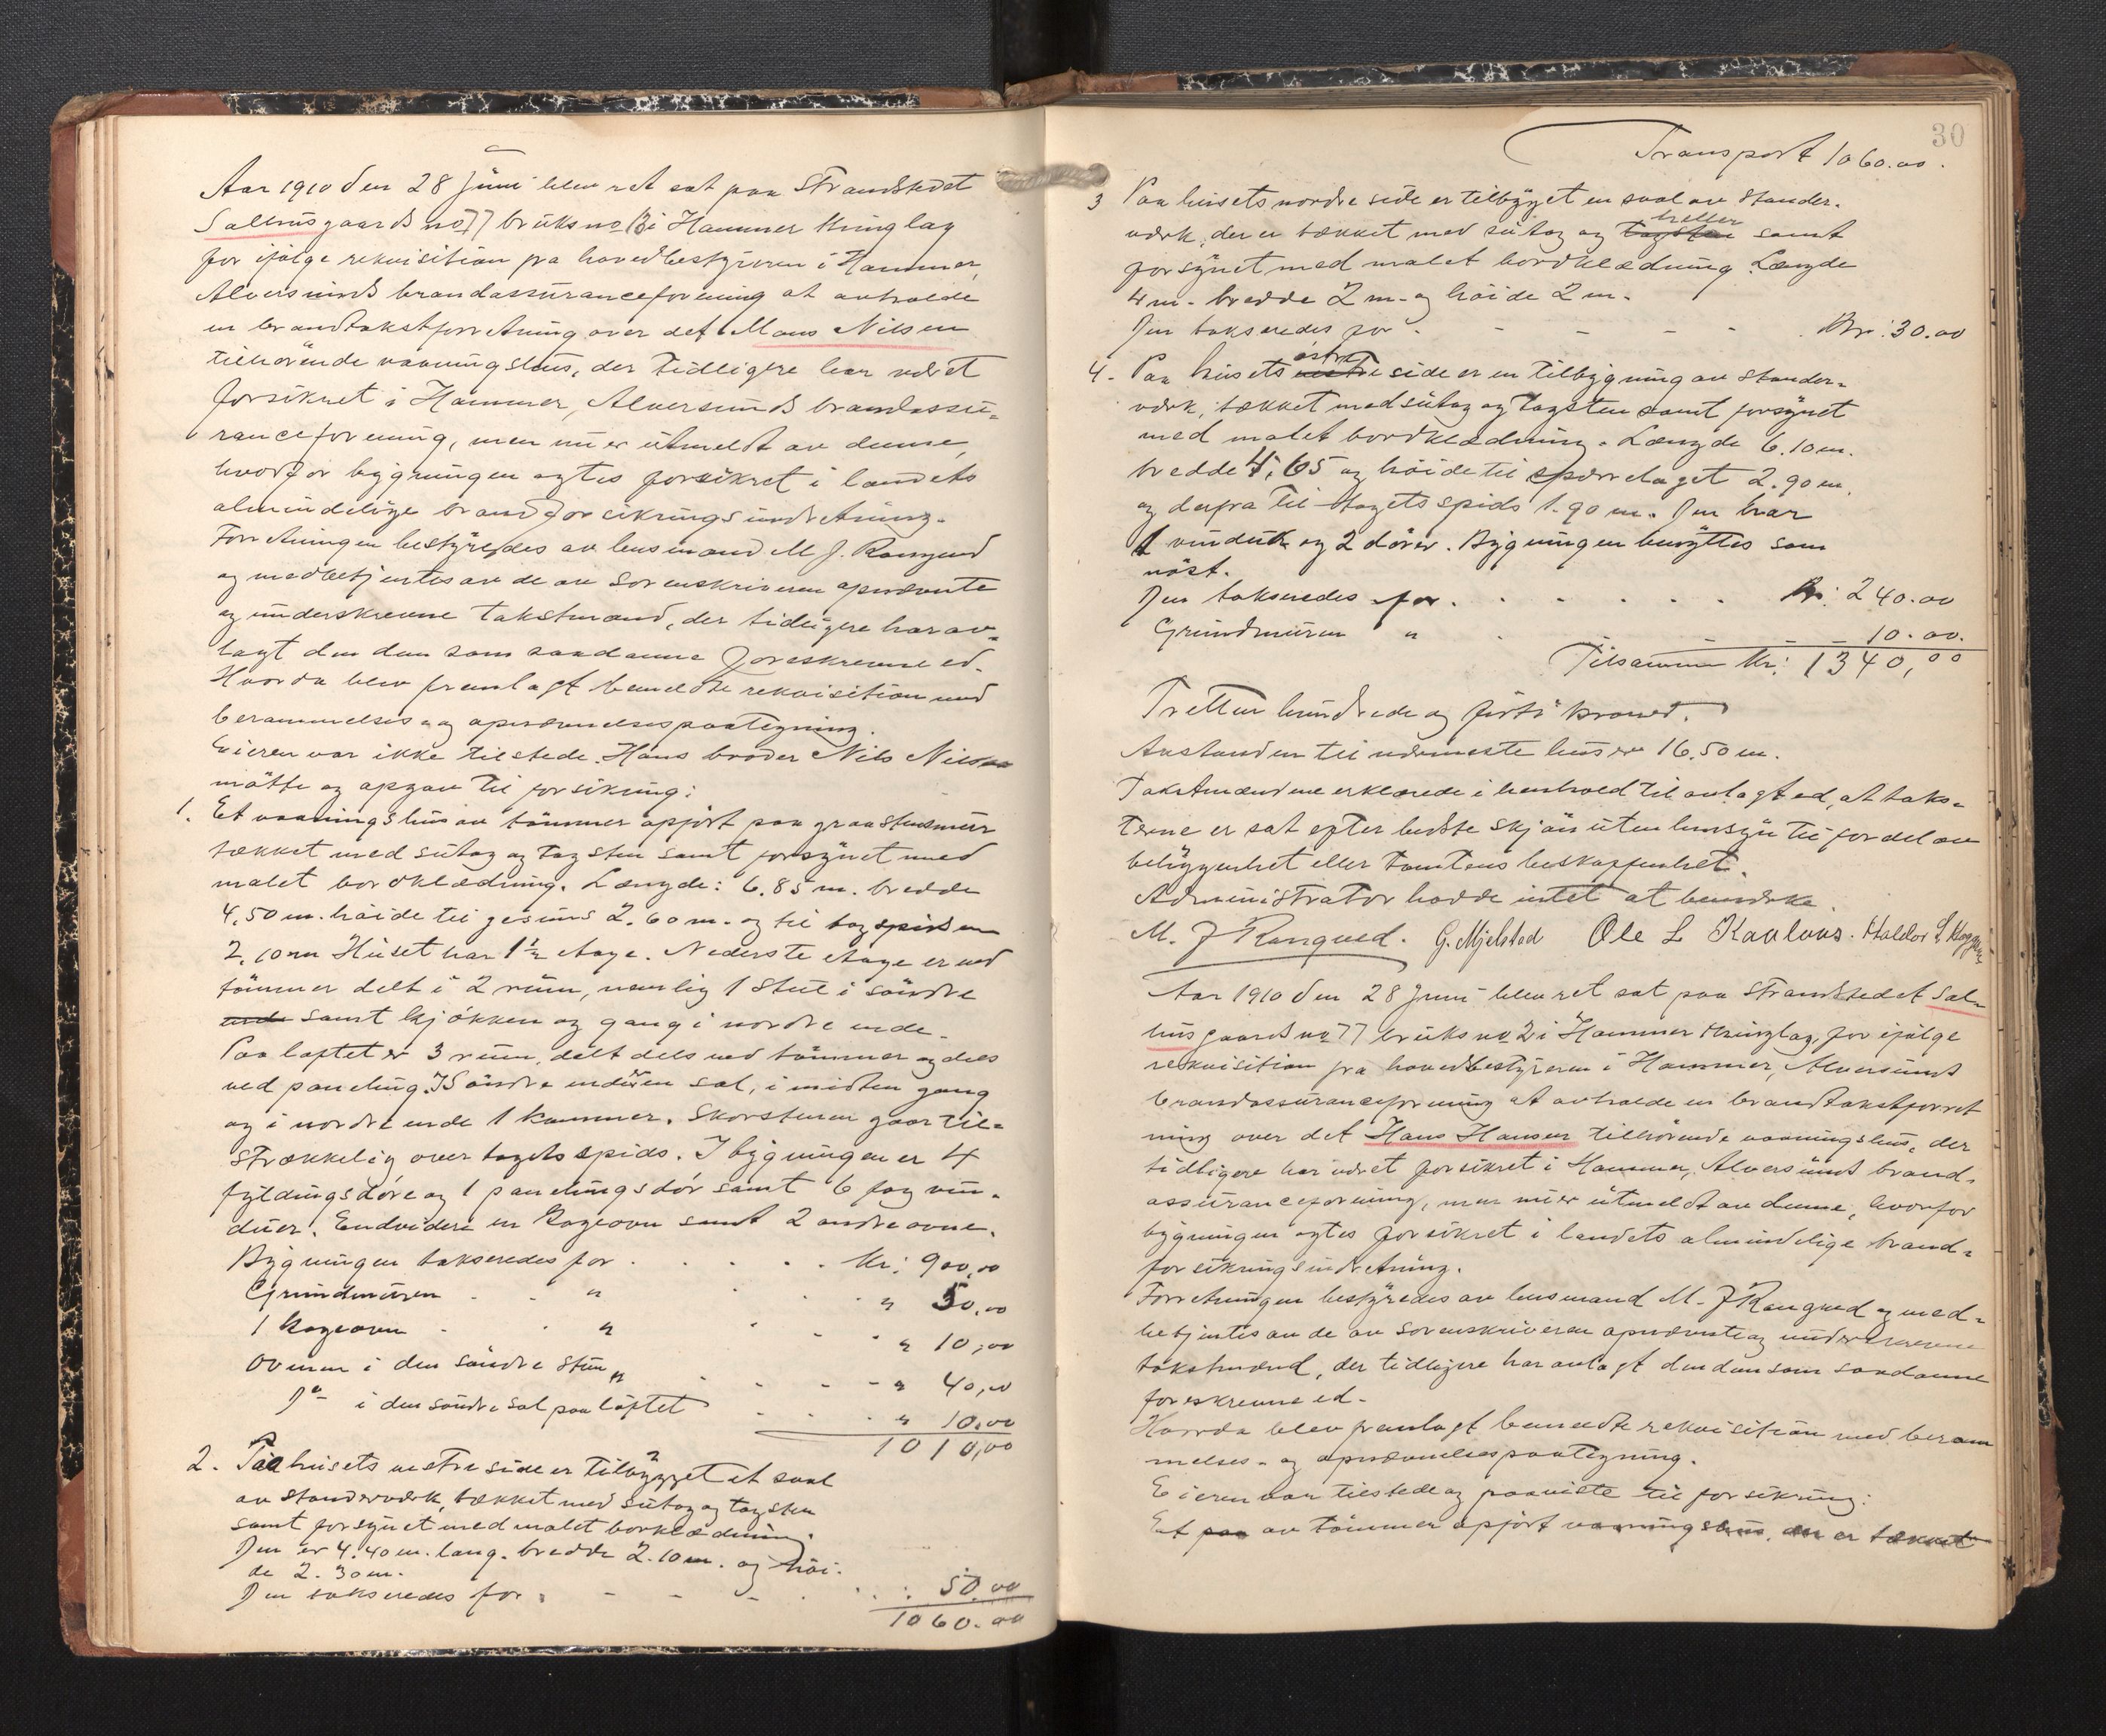 Aar 1910 den 28 Juni blev ret sat paa strandstedet
Salhus gaards no 77 bruks no 13 i Hammer thinglag
for ifølge rekvisition fra hovedbestyreren i Hammer,
Alversunds brandassuranceforening at avholde
en brandtakstforretning over det Mons Nilsen
tilhørende vaaningshus, der tidligere har været
forsikret i Hammer, Alversunds brandassu-
ranceforening, men nu er utmeldt av denne,
hvorfor bygningen agtes forsikret i landets
almindelige brandforsikringsindretning.
Forretningen bestyredes av lensmand M J. Kongsvd
og medbetjentes av de av sorenskriveren opnævnte
og underskrevne takstmænd, der tidligere har av-
lagt den dem som saadanne foreskrevne ed.
Hvorda blev fremlagt bemeldte rekvisition med
berammelses- og opnævnelsespaategning.
Eieren var ikke tilstede. Hans broder Nils Nilsen
møtte og opgav til forsikring:
1. Et vaaningshus av tømmer opført paa graastensmur
tækket med sutag og tagsten samt forsynet med
malet bordklædning. Længde: 6.85 m. bredde
4.50 m. høide til gesims 2.60 m. og til tagspidsen
2.10 m Huset har 1½ etage. Nederste etage er ved
tømmer delt i 2 rum, nemlig 1 stue i søndre
ende samt kjøkken og gang i nordre ende.
Paa loftet er 3 rum, delt dels ved tømmer og dels
ved paneling. I søndre ende er en sal, i midten gang
og i nordre ende 1 kammer. Skorstenen gaar til-
strækkelig over tagets spids. I bygningen er 4
fyldingsdøre og 1 panelingsdør samt 6 fag vin-
duer. Endvidere en kogeovn samt 2 andre ovne.
Bygningen takseredes for . . . . . Kr: 900,00
Grundmuren . . " . . " 50,00
1 kogeovn . . " . . " 10,00
Ovnen i den søndre stue " . . - " 40,00
Do i den søndre sal paa loftet . . . " 10,00
1010,00
2. Paa husets vestre side er tilbygget et sval
av standerværk, tækket med sutag og tagsten
samt forsynet med malet borklædning.
Den er 4.40 m. lang. bredde 2.10 m. og høi-
de 2.30 m.
Den takseredes for . - - - . . : 50.00
1060.00
30
Transport 1060.00.
3 Paa husets nordre side er tilbygget en sval av stander-
værk, der er tækket med sutag og tagsten heller samt
forsynet med malet bordklædning. Længde
4 m. bredde 2 m. og høide 2 m.
Den takseredes for . - - - - . Kr: 30.00
4. Paa husets vestre østre side er en tilbygning av stander-
værk, tækket med sutag og tagsten samt forsynet
med malet bordklædning. Længde 6.10 m.
bredde 4,65 og høide til sperrelaget 2.90 m.
og derfra til tagets spids 1.90 m. Den har
1 vindu og 2 dører. Bygningen benyttes som
nøst.
Den takseredes for . . . . . . Kr: 240.00
Grundmuren " . 10.00.
Tilsammen Kr: 1340,00
Tretten hundrede og firti kroner.
Avstanden til nærmeste hus er 16.50 m.
Takstmændene erklærede i henhold til avlagt ed, at taks-
terne er sat efter bedste skjøn uten hensyn til fordel av
beliggenhet eller tomtens beskaffenhet.
Administrator hadde intet at bemærke.
M. J Kongsvd. G. Mjelstad Ole L Kaaluas. Haldor S.
Aar 1910 den 28 Juni blev ret sat paa strandstedet Sal-
hus gaards no 77 bruks no 2 i Hammer thinglag, for ifølge
rekvisition fra hovedbestyreren i Hammer, Alversunds
brandassuranceforening at avholde en brandtakstforret
ning over det Hans Hansen tilhørende vaaningshus, der
tidligere har været forsikret i Hammer, Alversunds brand-
assuranceforening, men nu er utmeldt av denne, hvorfor
bygningen agtes forsikret i landets almindelige brand-
forsikringsindretning.
Forretningen bestyredes av lensmand M. J Kongsvd og med-
betjentes av de av sorenskriveren opnævnte og underskrevne
takstmænd, der tidligere har avlagt den dem som saadanne
foreskrevne ed.
Hvorda blev fremlagt bemeldte rekvisition med beram
melses- og opnævnelsespaategning.
Eieren var tilstede og paaviste til forsikring:
Et paa av tømmer opført vaaningshus, der er tækket